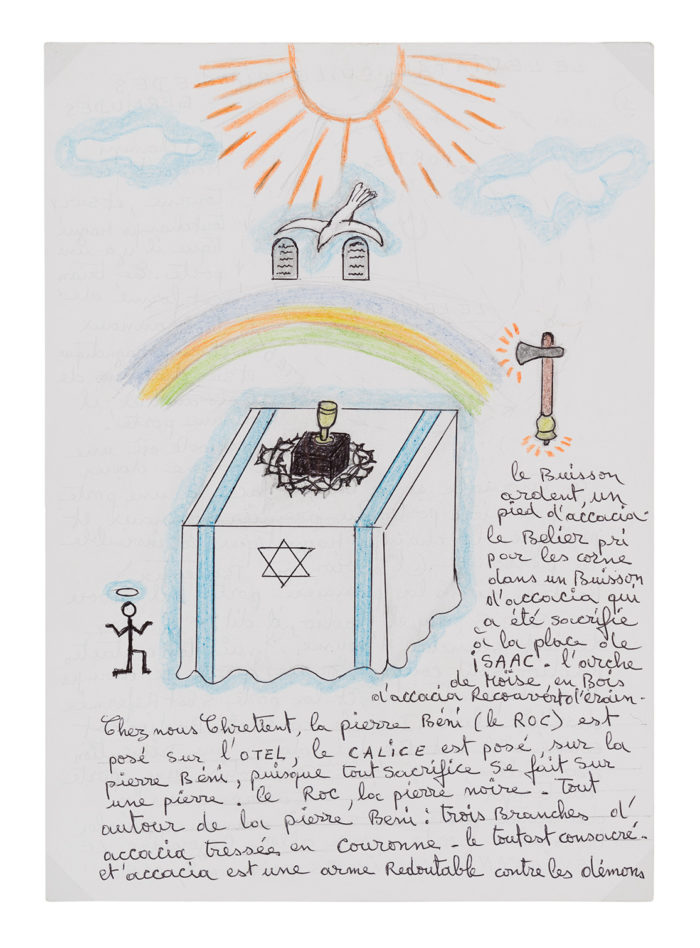 le Buisson
ardent, un
pied d'accacia-
le Belier pri
par les corne
dans un Buisson
d'accacia qui
a été sacrifié
à la place de
iSAAC. l'arche
de Moïse, en Bois
d'accacia Recouvert d'érain-
Chez nous Chretient, la pierre Béni (le ROC) est
posé sur l'OTEL, le CALICE est posé, sur la
pierre Béni, puisque tout Sacrifice se fait sur
une pierre. le Roc, la pierre noire. Tout
autour de la pierre Beni: trois Branches d'
accacia tressée en couronne - le toutest consacré-
et l'accacia est une arme Redoutable contre les démons